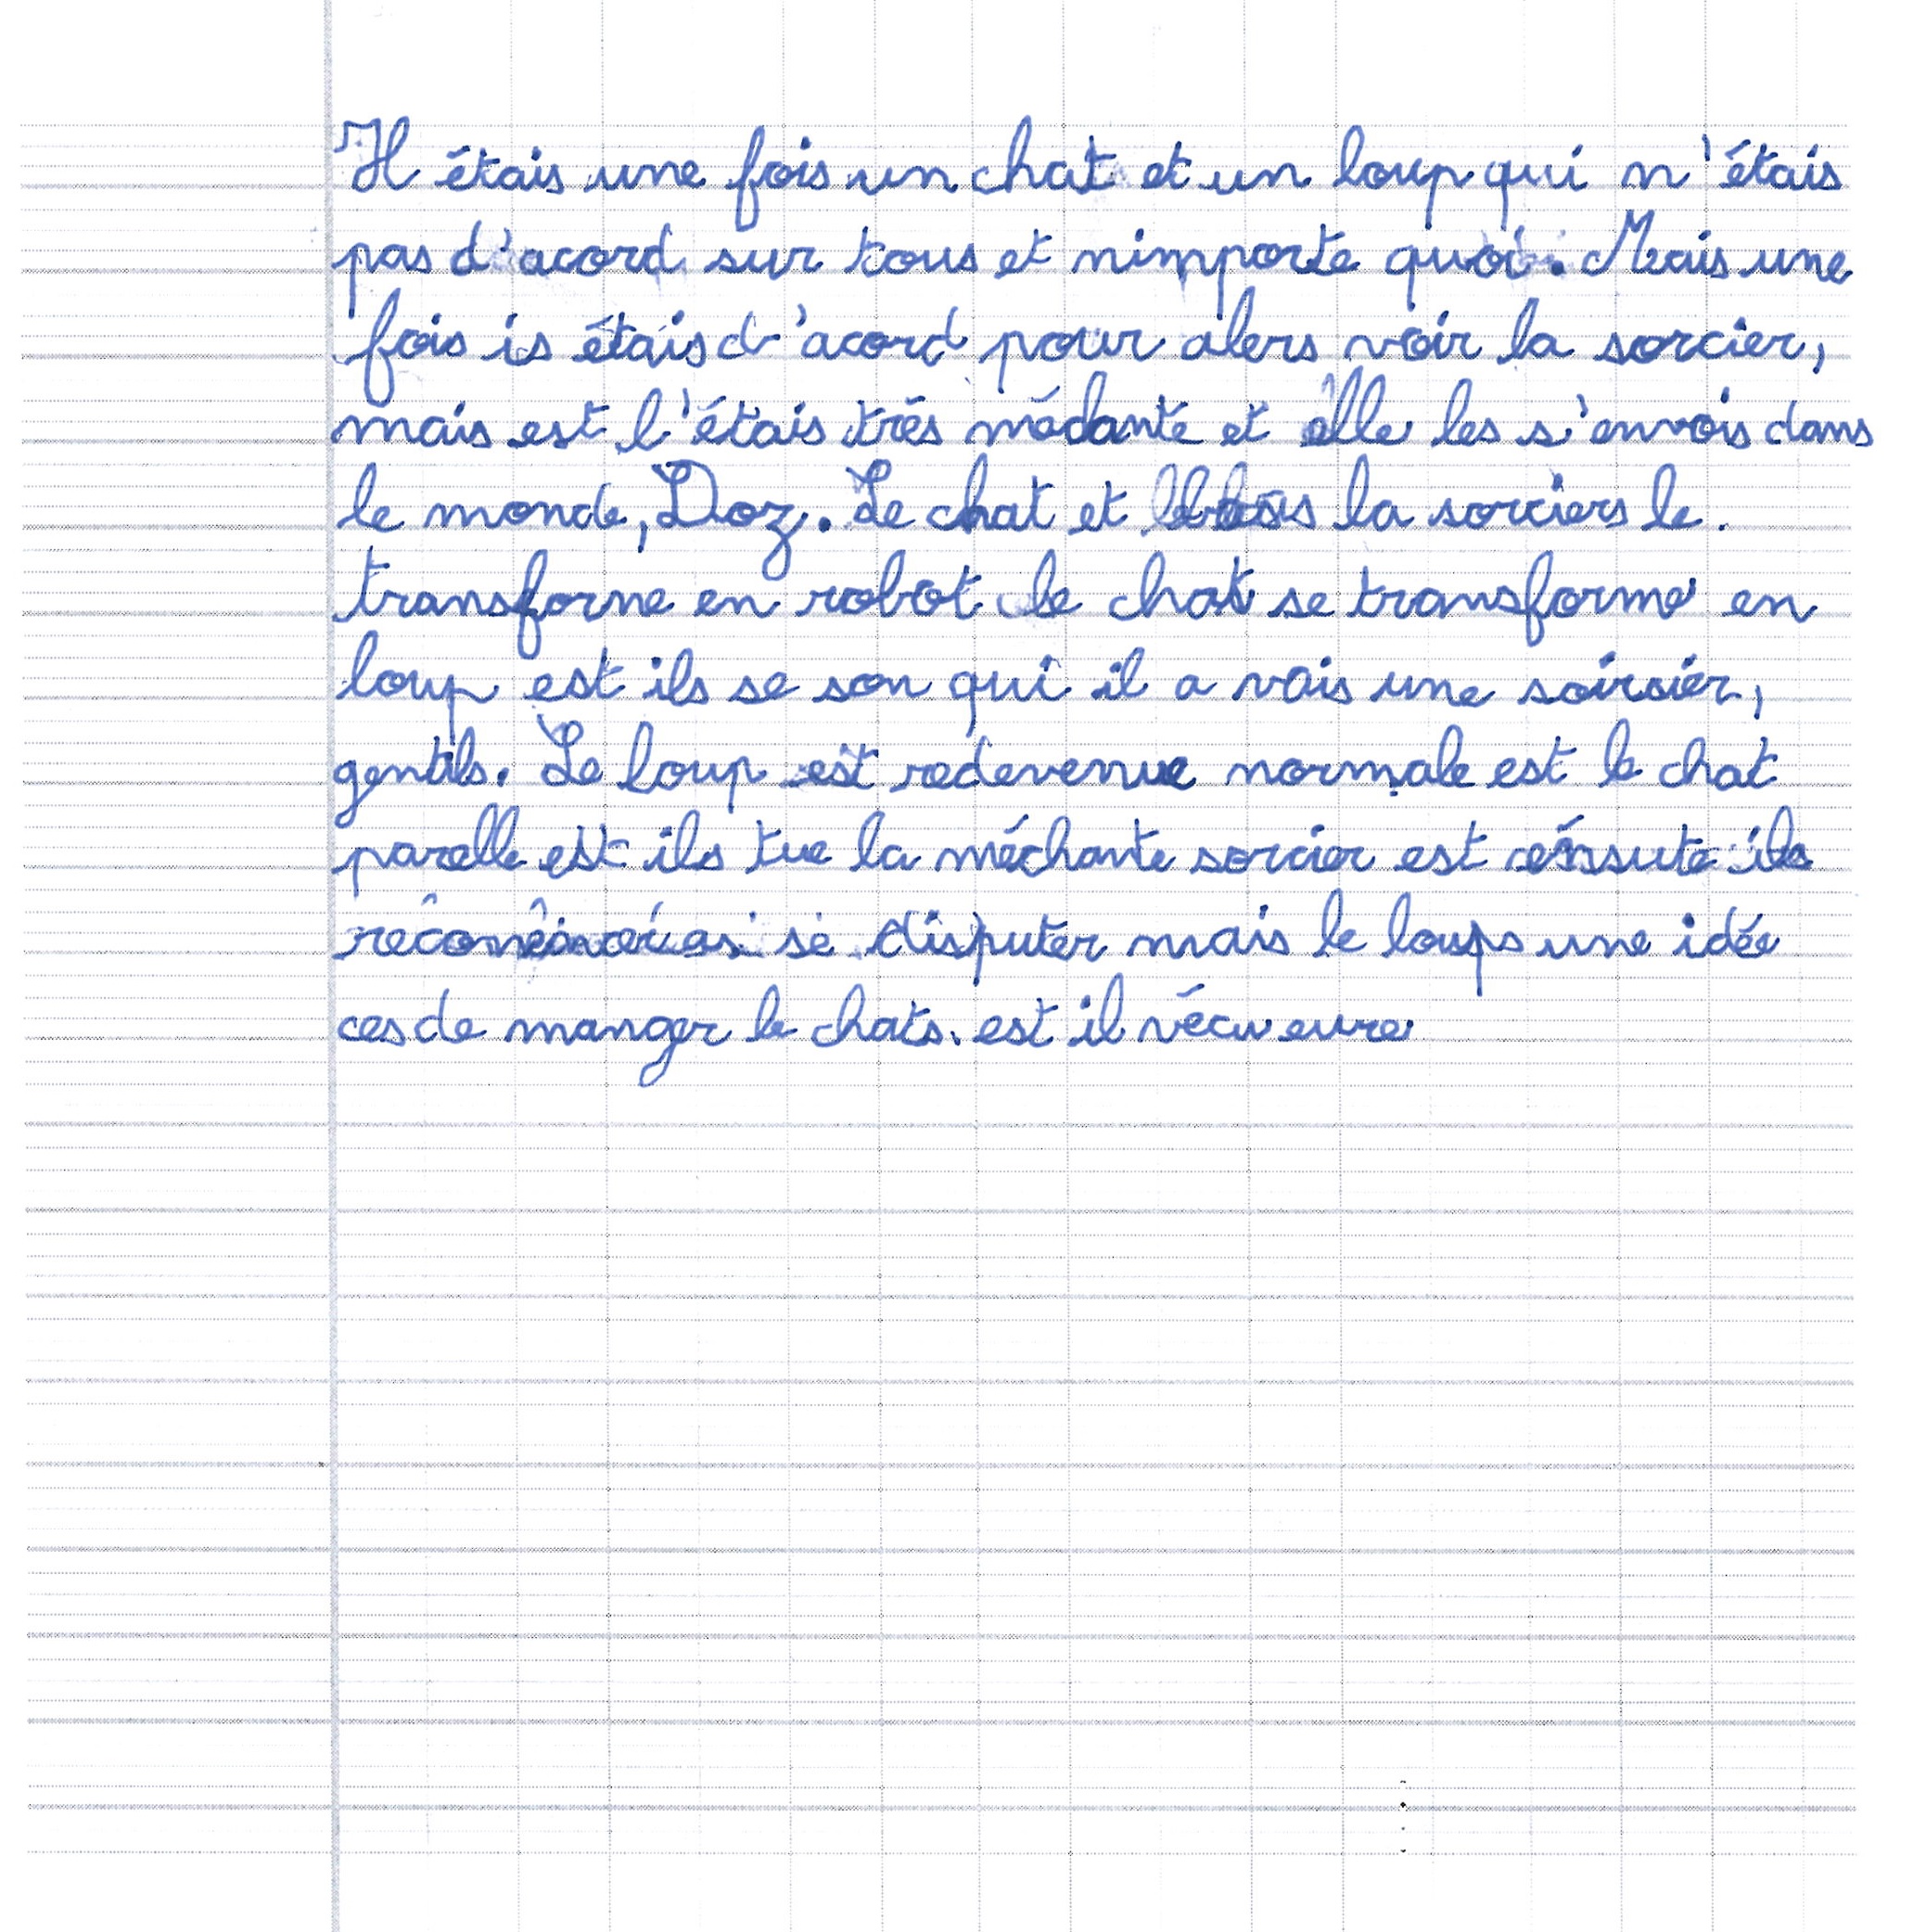 Il étais une fois un chat et un loup qui n'étais
pas d'acord sur tous et nimporte quoi. Mais une
fois is étais d'acord pour alers voir la sorcier,
mais est l'étais très médante et elle les s'envois dans
le monde, Doz. Le chat et la sorciers le.
transforne en robot le chat se transforme en
loup est ils se son qui il a vais une soirsier,
gentils. Le loup est redevenue normale est le chat
parelle est ils tue la méchante sorcier est ensute ils
se disputer mais le loups une idée
ces de manger le chats. est il vécu eure